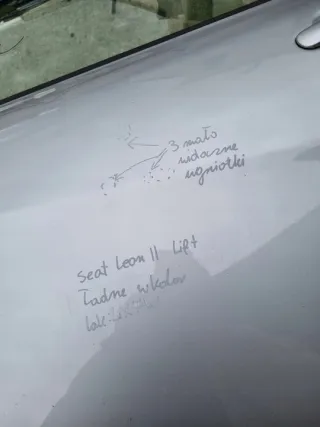 3 mało
widoczne
wgniotki
Seat Leon II Lift
Ładne w kolor
lak: